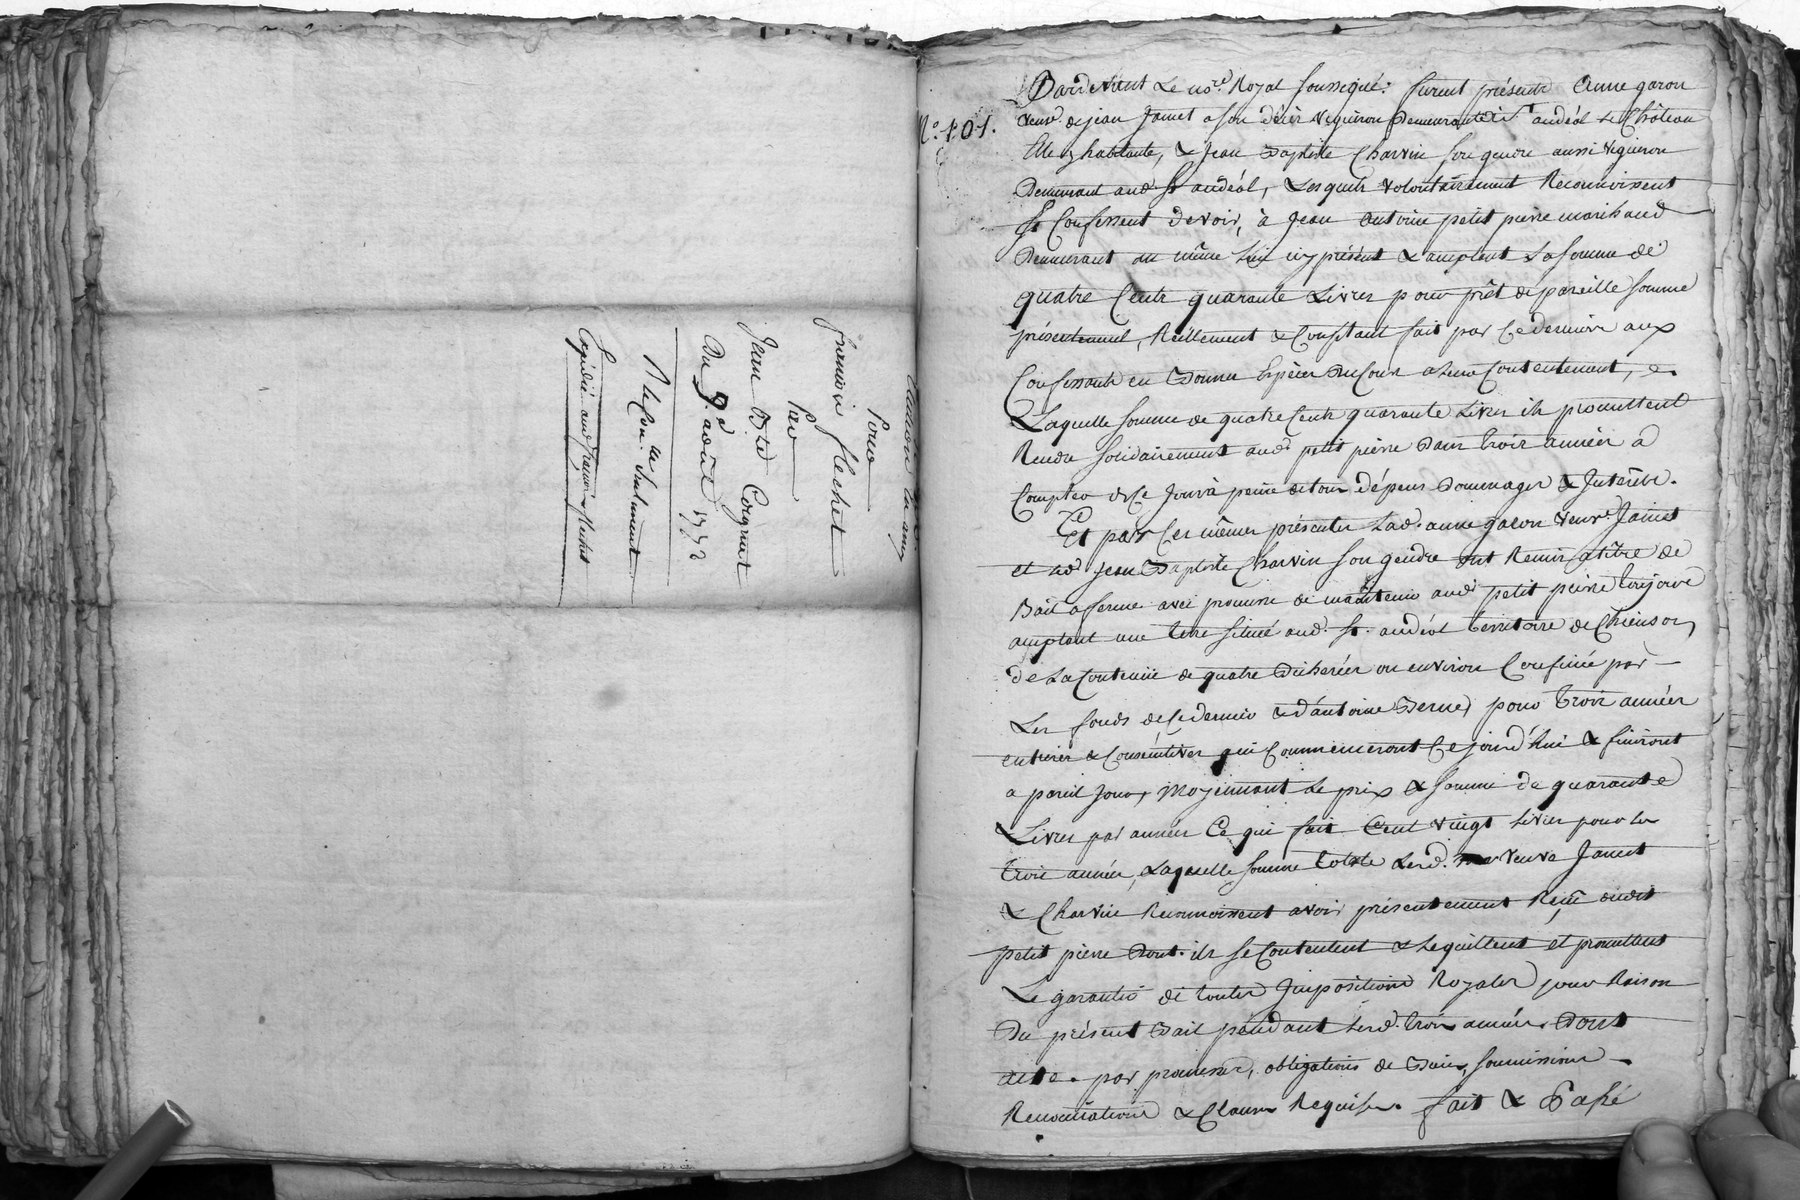 Pour
francois flechet
Par
Jean Bte Coignet
Du 9 août 1772
Expédié aud françois flechet
N.o 101.
Pardevant Le nore. Royal soussigné: furent présents Anne garon
veuve de jean Jamet a son décès vigneron Demeurante à St andéol Le Château
Elle y habitante, & Jean Baptiste Charvin son gendre aussi vigneron
Demeurant aud. St andéol, Lesquels volontairement Reconnoissent
& Confessent devoir, à Jean antoine petit pierre marchand
Demeurant au même Lieu icy présent & acceptant La somme de
quatre Cents quarante Livres pour prêt de pareille somme
présentement, Réellement & Comptant fait par Ce dernier aux
Confessants en Bonnes Espèces Du Cour a Leur Contentement,
Laquelle somme de quatre Cents quarante Livres ils promettent
Rendre solidairement aud. petit pierre Dans trois années à
Compter de Ce Jour à peine de tous dépens Dommages & Intérêts.
Et par Ces mêmes présentes Lad. anne garon veuve Jamet
et led. jean Baptiste Charvin son gendre ont Remis a titre de
Bail a ferme avec promesse de maintenir aud. petit pierre toujours
acceptant une terre située aud. St. andéol territoire de
de La Contenue de quatre Bicherées ou environ Confinée par
Les fonds de Ce dernier & d'antoine pour trois années
entieres & Consécutives qui Commenceront Ce jourd'hui & finiront
a pareil Jour, Moyennant Le prix & somme de quarante
Livres par année Ce qui fait Cent vingt Livres pour Les
trois années, Laquelle somme totale Lesd. veuve Jamet
& Charvin Reconnoissent avoir présentement Reçue dudit
petit pierre Dont ils se Contentent & Le quittent et promettent
Le garantir de toutes Impositions Royales pour Raison
Du présent Bail pendant Lesd. trois années. Dont
acte. par promesses, obligations de Biens, soumissions
Renonciations & Clauses Requises. fait & Passé